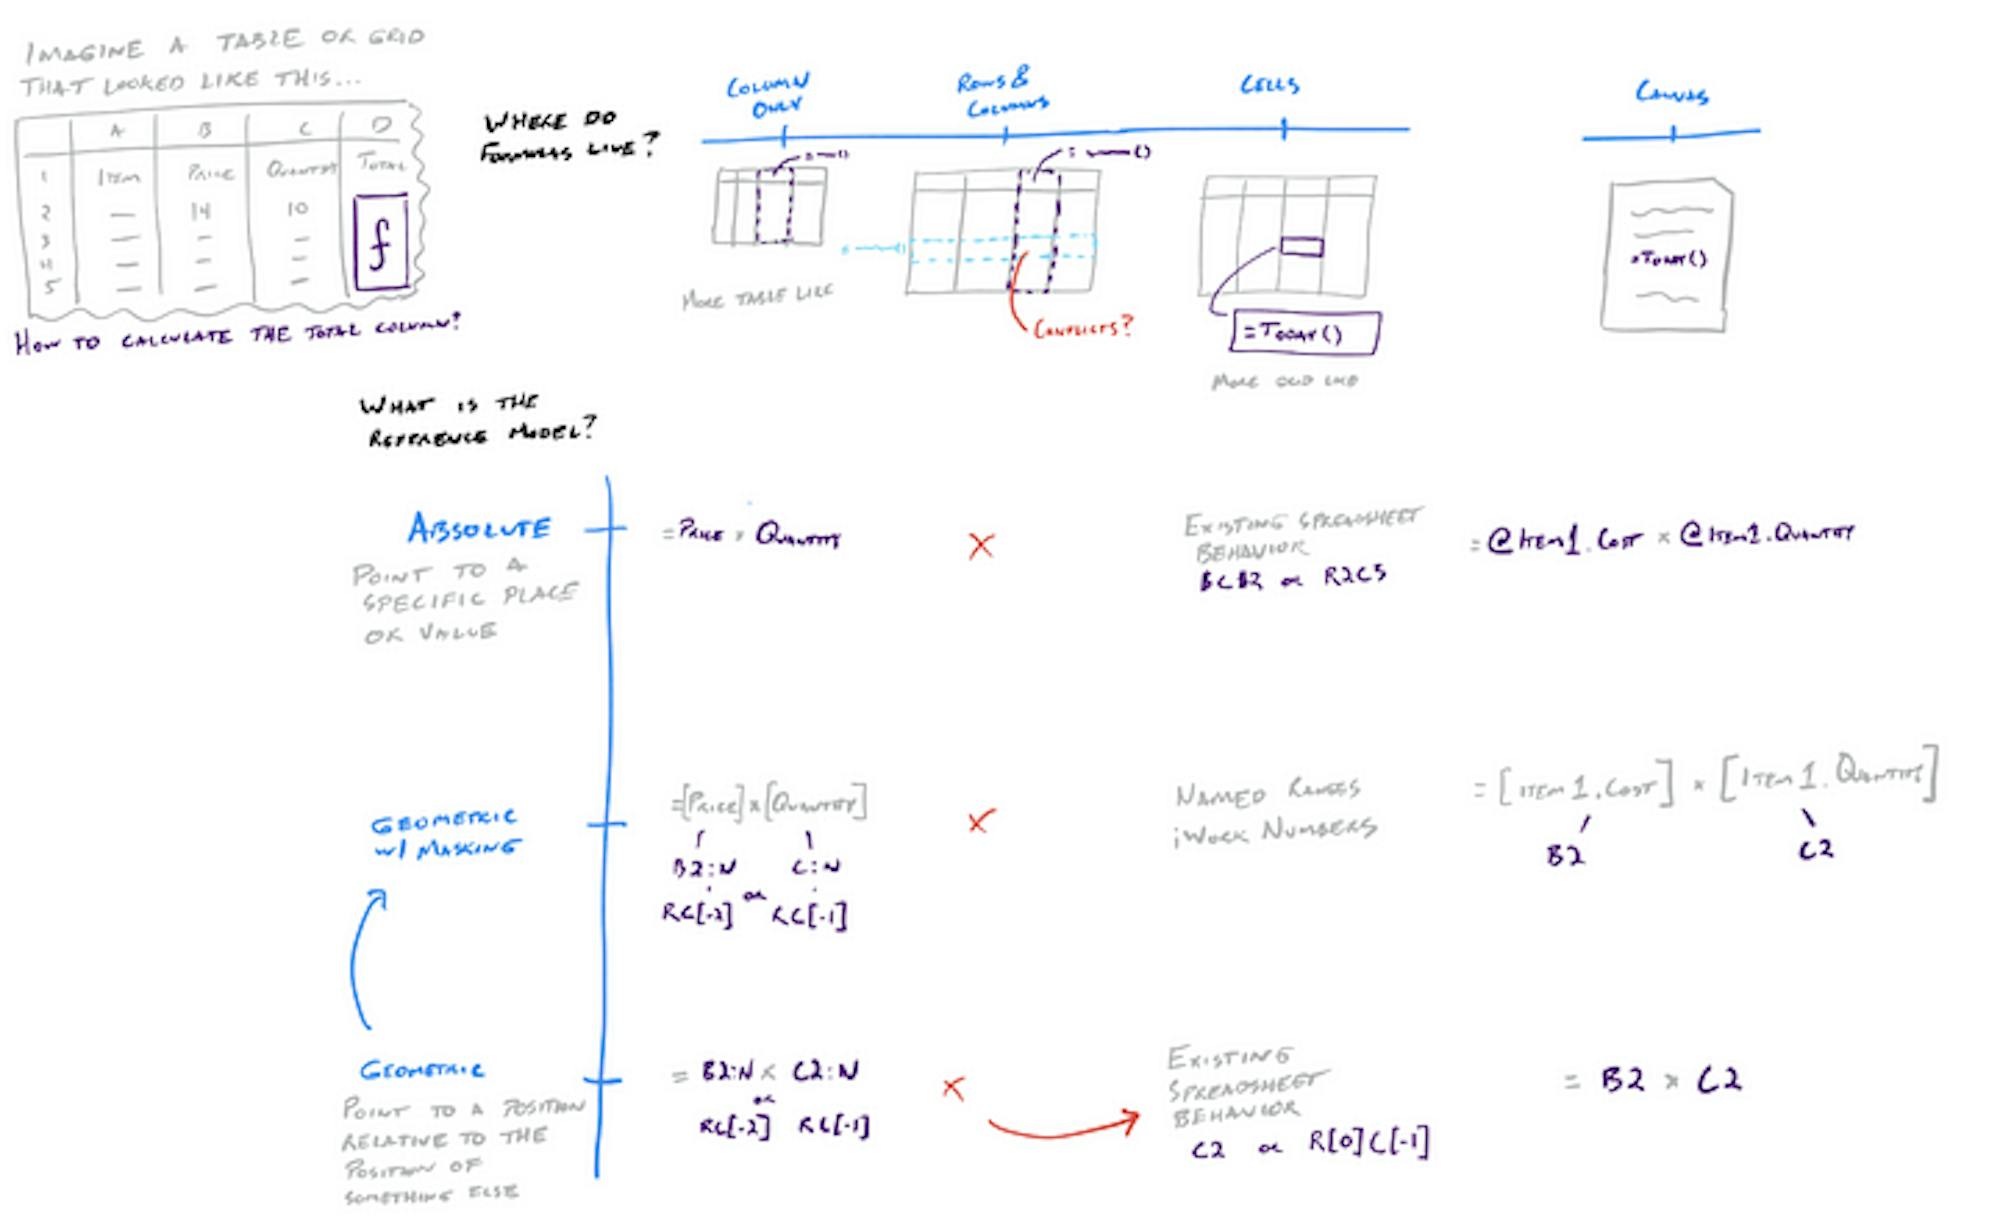 IMAGINE A TABLE OR GRID
THAT LOOKED LIKE THIS...
A B C D
1 ITEM PRICE QUANTITY TOTAL
2 — 14 10
3 — – –
4 — – –
5 — – –
f
HOW TO CALCULATE THE TOTAL COLUMN?
WHERE DO
FORMULAS LIVE?
COLUMN
ONLY
= ―()
MORE TABLE LIKE
ROWS &
COLUMNS
= ―()
= ―()
CONFLICTS?
CELLS
=TODAY()
MORE GRID LIKE
CANVAS
=TODAY()
WHAT IS THE
REFERENCE MODEL?
ABSOLUTE
POINT TO A
SPECIFIC PLACE
OR VALUE
=PRICE × QUANTITY
×
EXISTING SPREADSHEET
BEHAVIOR
$C$2 OR R2C3
= @ITEM1.COST × @ITEM1.QUANTITY
GEOMETRIC
W/ MASKING
=[PRICE]×[QUANTITY]
B2:N C:N
OR
RC[-2] RC[-1]
×
NAMED RANGES
iWORK NUMBERS
= [ITEM1.COST] × [ITEM1.QUANTITY]
B2 C2
GEOMETRIC
POINT TO A POSITION
RELATIVE TO THE
POSITION OF
SOMETHING ELSE
= B2:N × C2:N
OR
RC[-2] RC[-1]
×
EXISTING
SPREADSHEET
BEHAVIOR
C2 OR R[0]C[-1]
= B2 × C2